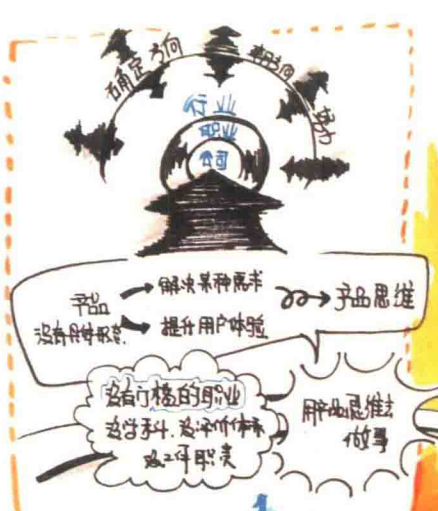 确定方向
朝向
努力
行业
职业
公司
产品
没有具体形态
解决某种需求
提升用户体验
产品思维
没有门槛的职业
没学科、没评价体系
没工作职责
用产品思维去
做事